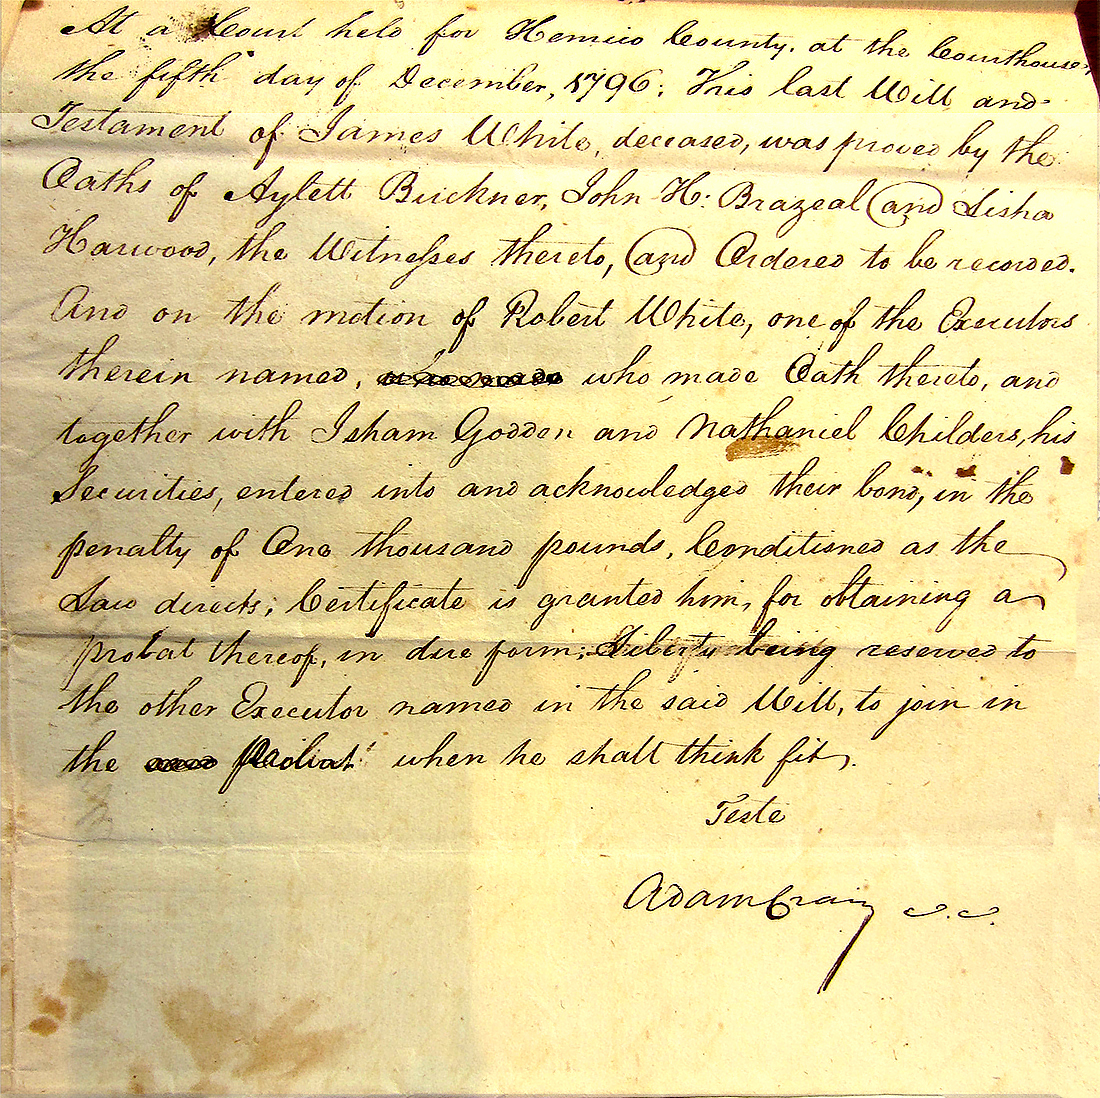 At a Court held for Henrico County, at the Courthouse,
the fifth day of December, 1796; This last Will and
Testament of James White, deceased, was proved by the
Oaths of Aylett Buckner, John H: Brazeal (and) Lisha
Harwood, the Witnesses thereto, (and) Ordered to be recorded.
And on the motion of Robert White, one of the Executors
therein named, who made Oath thereto, and
together with Isham Godden and Nathaniel Childers, his
Securities, entered into and acknowledged their bond, in the
penalty of One thousand pounds, Conditioned as the
Law directs; Certificate is granted him, for obtaining a
probat thereof, in due form; Liberty being reserved to
the other Executor named in the said Will, to join in
the Probat when he shall think fit.
Teste
Adam Craig C.C.